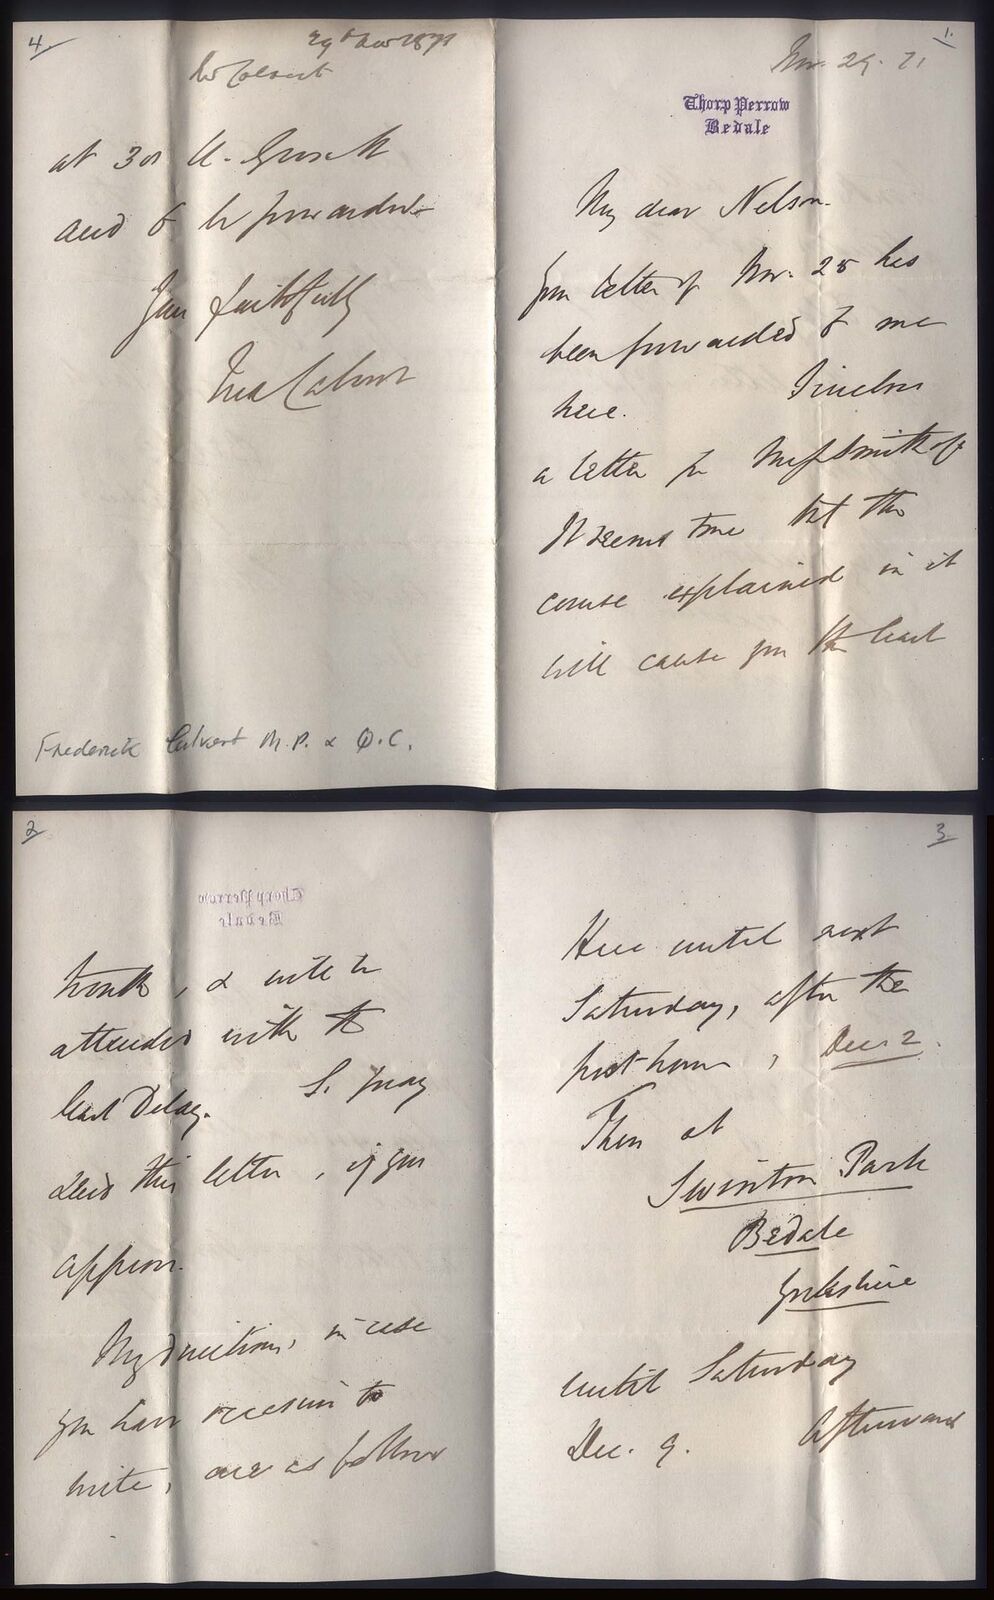 1.
Nov. 29. 71
Thorp Perrow
Bedale
My dear Nelson.
Your letter of Nov. 28 has
been forwarded to me
here. I inclose
a letter for Mess Smith &
It seems to me that the
course explained in it
will cause you the least
2
trouble, & will be
attended with the
least Delay. So pray
send this letter, if you
approve.
My directions, in case
you have occasion to
write, are as follows
3
Here until next
Saturday, after the
post-hour, Dec. 2.
Then at
Swinton Park
Bedale
Yorkshire
until Saturday
Dec. 9. Afterwards
4
29th Nov 1871
Calvert
at 38 U. Gros. St
and to be forwarded
Yours faithfully
Fred Calvert
Frederick Calvert M.P. & Q.C.